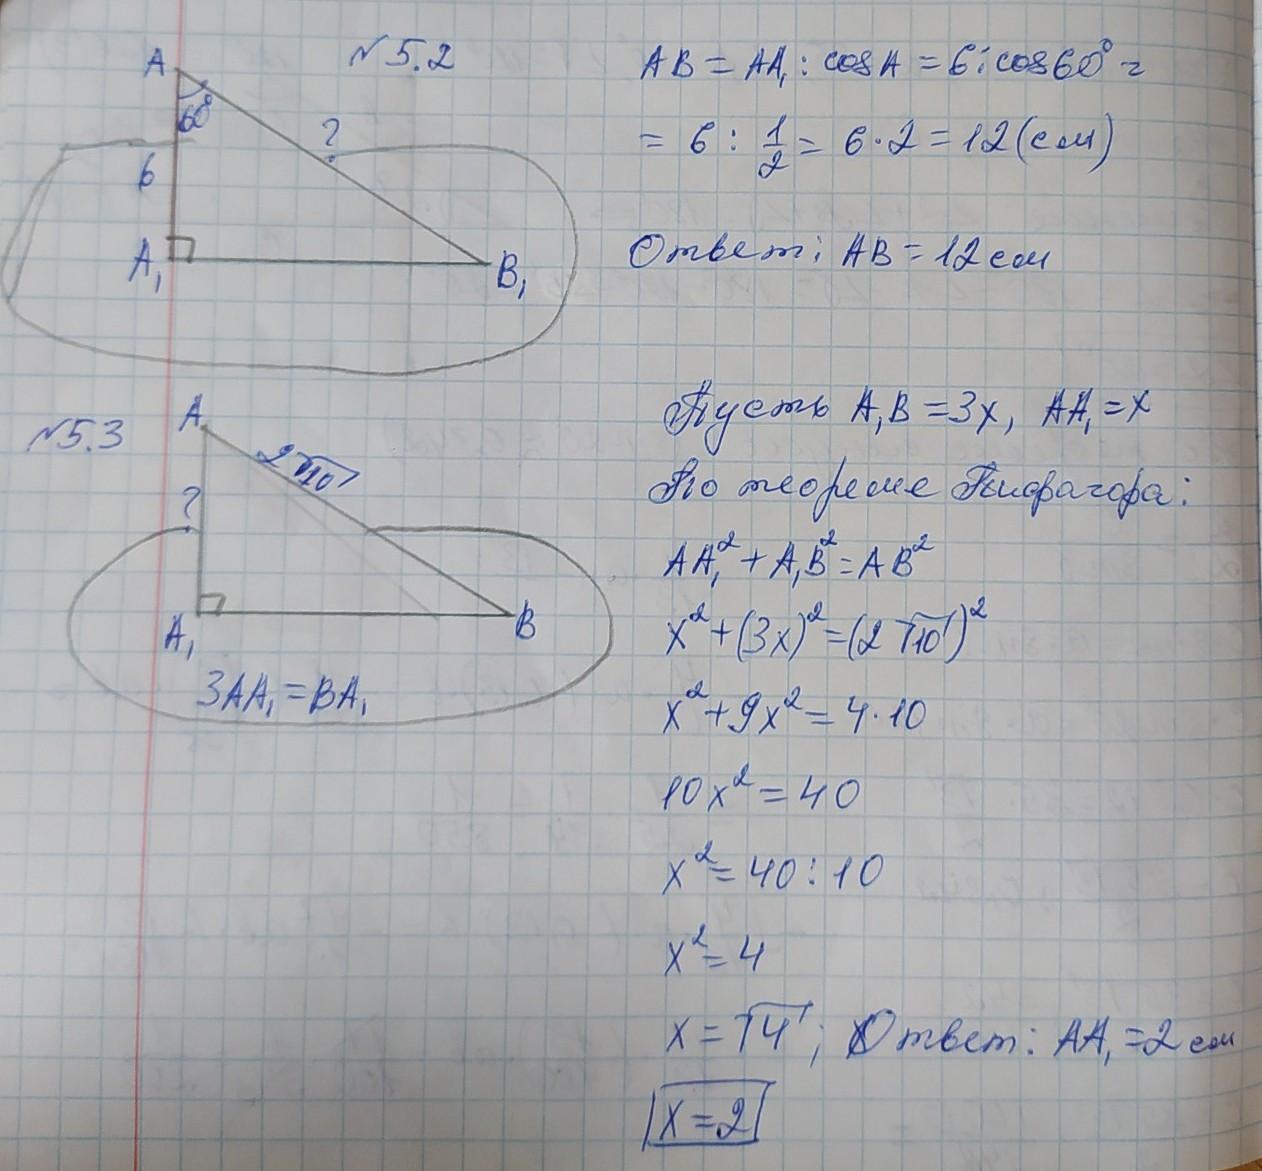 №5.2
A
60°
?
6
A₁
B₁
AB = AA₁ : cosA = 6 : cos60° =
= 6 : 1/2 = 6·2 = 12 (см)
Ответ: AB = 12 см
№5.3
A
2√10
?
A₁
B
3AA₁ = BA₁
Пусть A₁B = 3x, AA₁ = x
По теореме Пифагора:
AA₁² + A₁B² = AB²
x² + (3x)² = (2√10)²
x² + 9x² = 4·10
10x² = 40
x² = 40 : 10
x² = 4
x = √4; Ответ: AA₁ = 2 см
x = 2